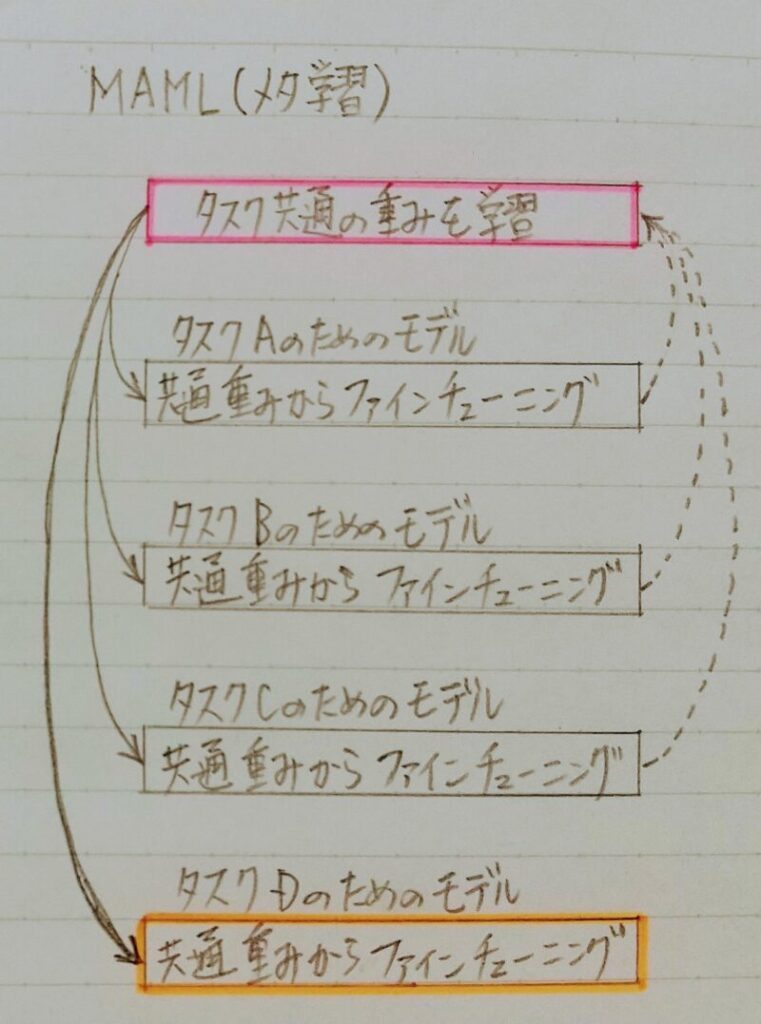 MAML(メタ学習)
タスク共通の重みを学習
タスクAのためのモデル
共通重みからファインチューニング
タスクBのためのモデル
共通重みからファインチューニング
タスクCのためのモデル
共通重みからファインチューニング
タスクDのためのモデル
共通重みからファインチューニング